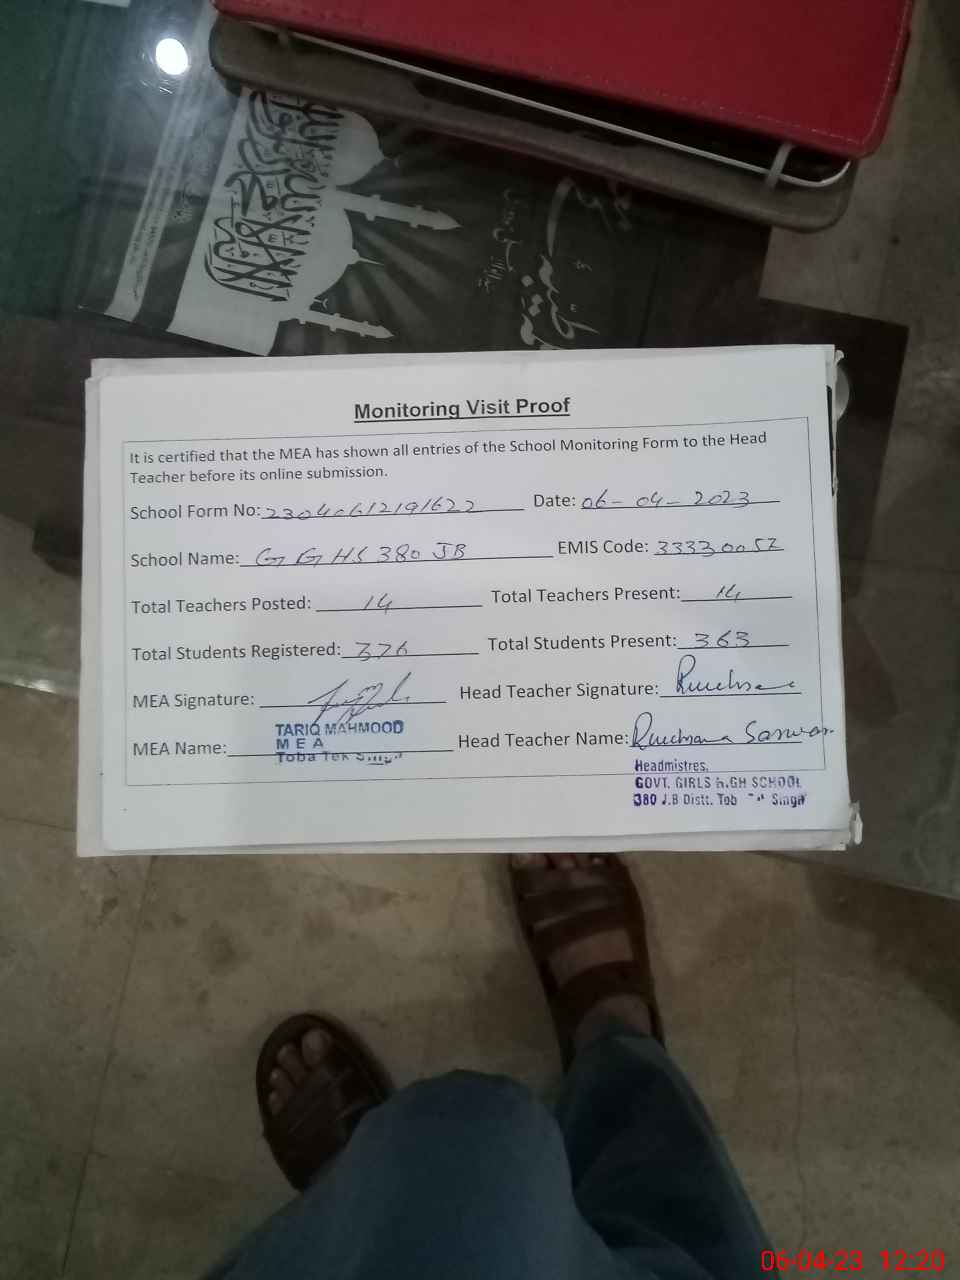 Monitoring Visit Proof
It is certified that the MEA has shown all entries of the School Monitoring Form to the Head
Teacher before its online submission.
School Form No: 23040612191622 Date: 06-04-2023
School Name: GGHS 380 JB EMIS Code: 33330052
Total Teachers Posted: 14 Total Teachers Present: 14
Total Students Registered: 376 Total Students Present: 363
MEA Signature: Head Teacher Signature:
MEA Name: TARIQ MAHMOOD Head Teacher Name: Sarwar
MEA
Toba Tek
Headmistres,
GOVT. GIRLS HIGH SCHOOL
380 J.B Distt. Tob Singh
06-04-23 12:20